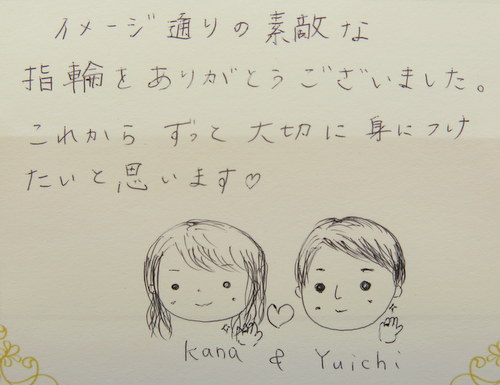 イメージ通りの素敵な
指輪をありがとうございました。
これから ずっと 大切に 身につけ
たいと思います♡
Kana & Yuichi